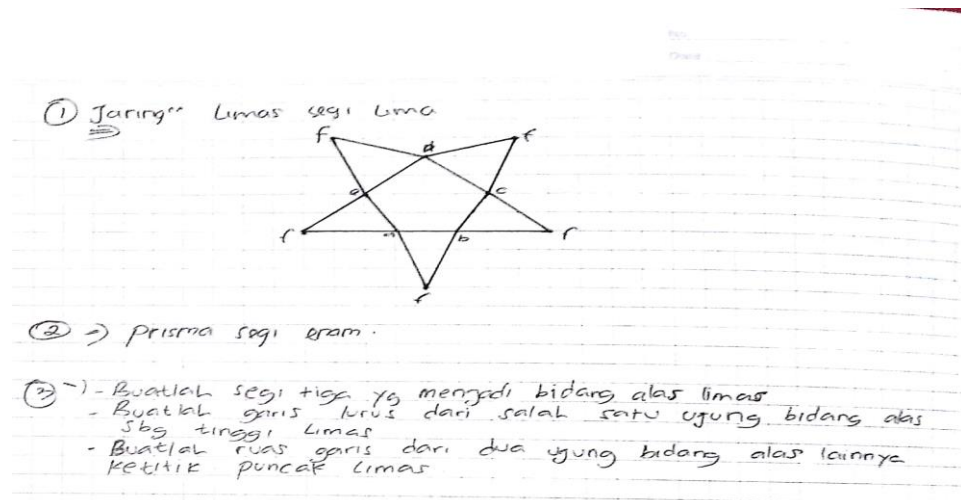 ① Jaring" Limas segi Lima
f f
d
e c
f a b f
f
② => Prisma segi enam.
③ -) - Buatlah segi tiga yg menjadi bidang alas limas
- Buatlah garis lurus dari salah satu ujung bidang alas
sbg tinggi Limas
- Buatlah ruas garis dari dua ujung bidang alas lainnya
ketitik puncak Limas